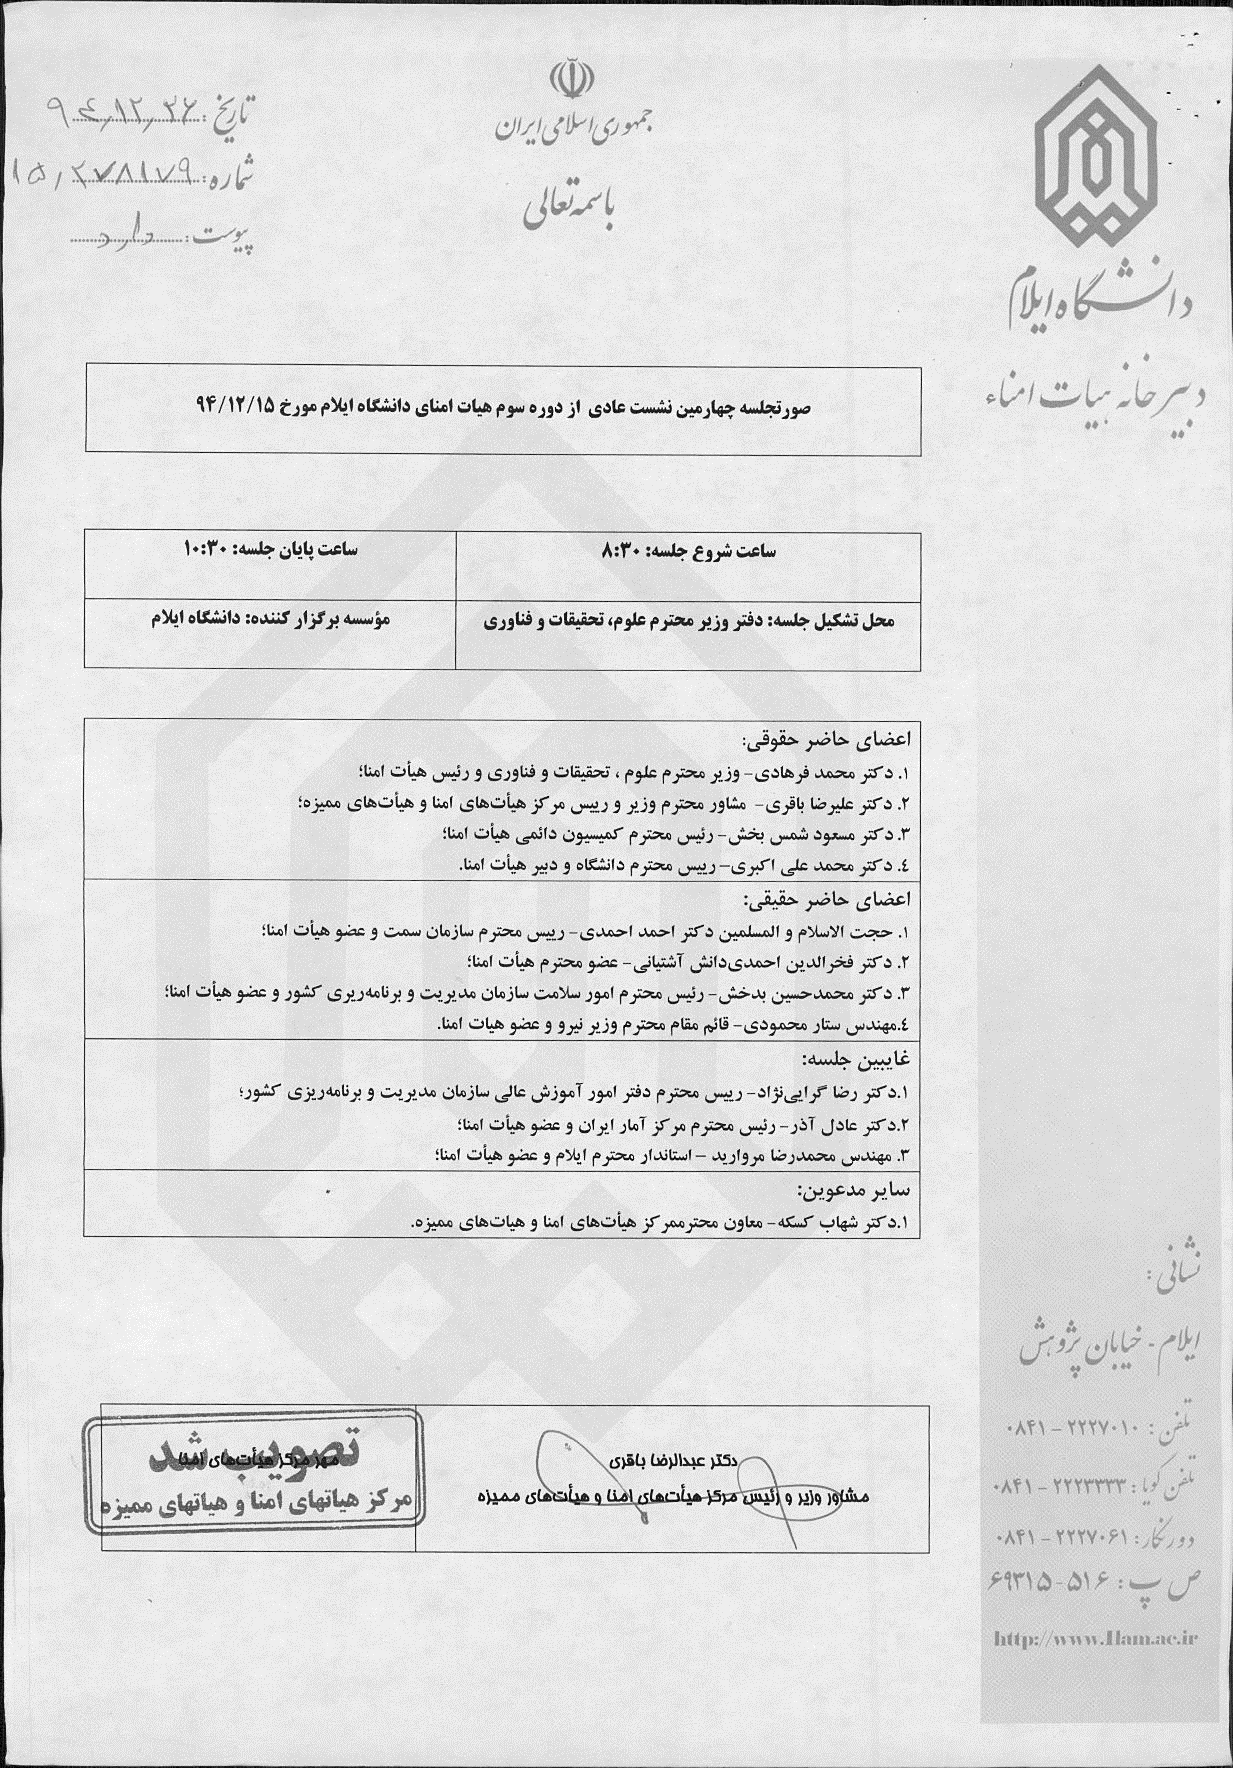 جمهوری اسلامی ایران
باسمه تعالی
تاریخ: ۹۴٫۱۲٫۲۶
شماره: ۱۵٫۲۷۸۱۷۹
پیوست: دارد
دانشگاه ایلام
دبیرخانه هیات امناء
صورتجلسه چهارمین نشست عادی از دوره سوم هیات امنای دانشگاه ایلام مورخ ۹۴/۱۲/۱۵
ساعت شروع جلسه: ۸:۳۰
ساعت پایان جلسه: ۱۰:۳۰
محل تشکیل جلسه: دفتر وزیر محترم علوم، تحقیقات و فناوری
مؤسسه برگزار کننده: دانشگاه ایلام
اعضای حاضر حقوقی:
۱. دکتر محمد فرهادی- وزیر محترم علوم ، تحقیقات و فناوری و رئیس هیأت امنا؛
۲. دکتر علیرضا باقری- مشاور محترم وزیر و رییس مرکز هیأت‌های امنا و هیأت‌های ممیزه؛
۳. دکتر مسعود شمس بخش- رئیس محترم کمیسیون دائمی هیأت امنا؛
٤. دکتر محمد علی اکبری- رییس محترم دانشگاه و دبیر هیأت امنا.
اعضای حاضر حقیقی:
۱. حجت الاسلام و المسلمین دکتر احمد احمدی- رییس محترم سازمان سمت و عضو هیأت امنا؛
۲. دکتر فخرالدین احمدی‌دانش آشتیانی- عضو محترم هیأت امنا؛
۳. دکتر محمدحسین بدخش- رئیس محترم امور سلامت سازمان مدیریت و برنامه‌ریری کشور و عضو هیأت امنا؛
٤.مهندس ستار محمودی- قائم مقام محترم وزیر نیرو و عضو هیات امنا.
غایبین جلسه:
۱.دکتر رضا گرایی‌نژاد- رییس محترم دفتر امور آموزش عالی سازمان مدیریت و برنامه‌ریزی کشور؛
۲.دکتر عادل آذر- رئیس محترم مرکز آمار ایران و عضو هیأت امنا؛
۳. مهندس محمدرضا مروارید – استاندار محترم ایلام و عضو هیأت امنا؛
سایر مدعوین:
۱.دکتر شهاب کسکه- معاون محترممرکز هیأت‌های امنا و هیات‌های ممیزه.
دکتر عبدالرضا باقری
مشاور وزیر و رئیس مرکز هیأت‌های امنا و هیأت‌های ممیزه
مهر مرکز هیأت‌های امنا
تصویب شد
مرکز هیاتهای امنا و هیاتهای ممیزه
نشانی:
ایلام - خیابان پژوهش
تلفن: ۲۲۲۷۰۱۰ – ۰۸۴۱
تلفن گویا: ۲۲۲۳۳۳۳ – ۰۸۴۱
دورنگار: ۲۲۲۷۰۶۱ – ۰۸۴۱
ص پ: ۵۱۶-۶۹۳۱۵
http://www.Ilam.ac.ir